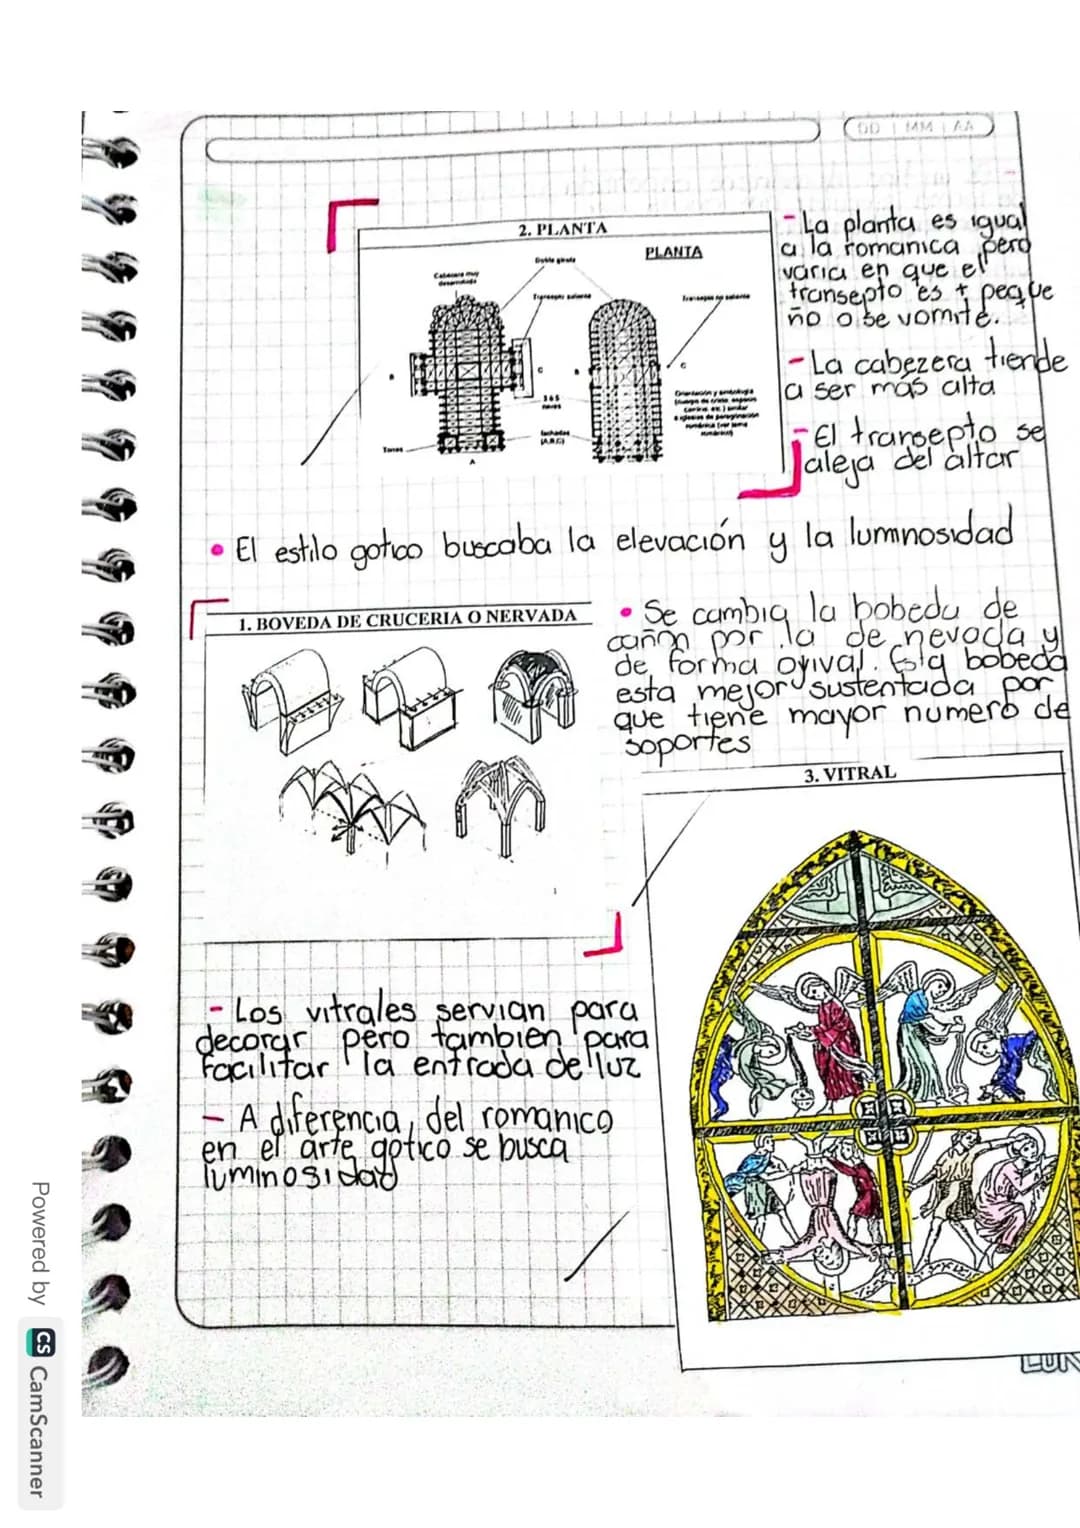 DD MM AA
2. PLANTA
PLANTA
Doble girola
Cabecera muy
desarrollada
Transepto saliente
Transepto no saliente
B
C
B
C
3 6 5
naves
fachadas
(A.B.C)
Torres
A
Orientación y simbología
- La planta es igual
a la romanica pero
varia en que el
transepto es + peque
ño o se vomite.
- La cabezera tiende
a ser más alta
- El transepto se
aleja del altar
• El estilo gotico buscaba la elevación y la luminosidad
1. BOVEDA DE CRUCERIA O NERVADA
• Se cambia la bobeda de
cañon por la de nevada y
de forma ojival. Esta bobeda
esta mejor sustentada por
que tiene mayor numero de
soportes
3. VITRAL
- Los vitrales servian para
decorar pero tambien para
facilitar la entrada de luz
- A diferencia, del romanico
en el arte gotico se busca
luminosidad
Powered by CS CamScanner